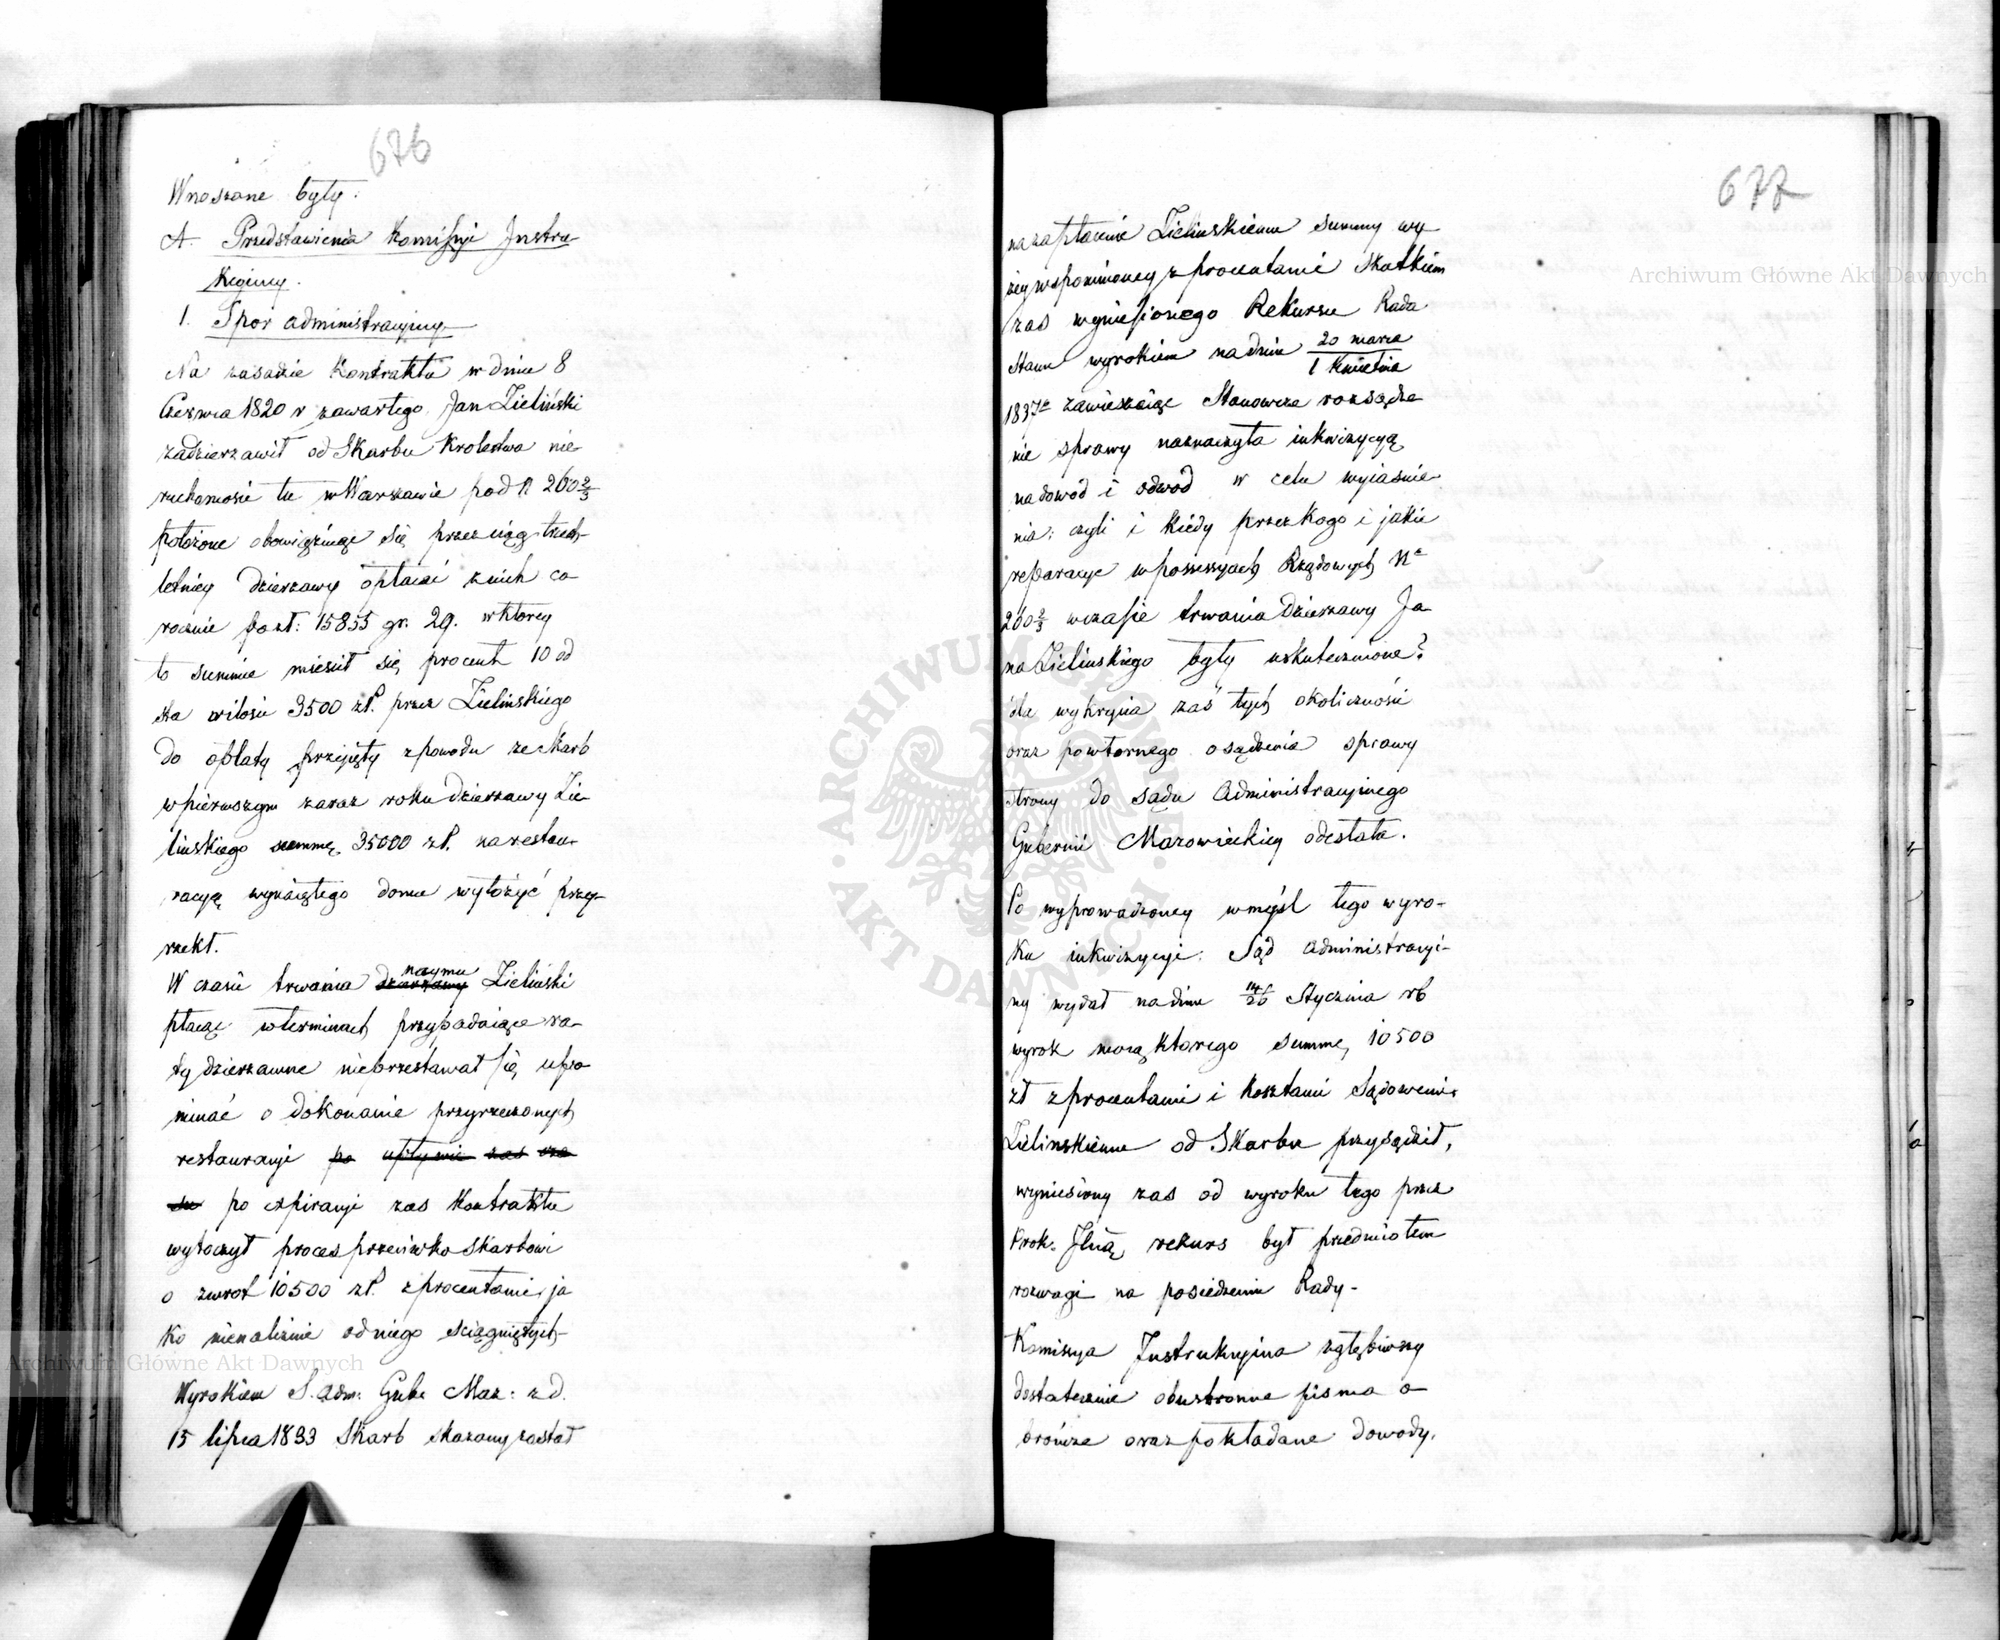 676
Wnoszone były:
A. Przedstawienia Komissyi Instru-
kcyiney.
1. Spór administracyjny
Na zasadzie Kontraktu w dniu 8
Czerwca 1820 r zawartego Jan Zieliński
zadzierzawił od Skarbu Krolestwa nie-
ruchomosci tu w Warszawie pod N 260 2/3
położone obowiązuiąc się przez ciąg trzech-
letniey dzierzawy opłacać z nich co-
rocznie po zł: 15855 gr. 29. w ktorey
to summie miescił się procent 10 od
sta w ilosci 3500 zł. przez Zielinskiego
do opłaty przyięty z powodu ze skarb
w pierwszym zaraz roku dzierzawy Zie-
linskiego summę 35000 zł. na restau-
racyą wynaiętego domu wyłożyć przy-
rzekł.
W czasie trwania dzierzawy naymu Zieliński
płacąc w terminach przypadaiące ra-
ty dzierzawne nieprzestawał się upo-
minać o dokonanie przyrzeczonych
restauracyi po upływie zas cza-
su po expiracyi zas Kontraktu
wytoczył proces przeciwko Skarbowi
o zwrot 10500 zł. z procentami, ja-
ko nienaliznie od niego sciągniętych-
Wyrokiem S. adm: Gube Maz: z d.
15 lipca 1833 Skarb skazany został
677
na zapłacenie Zielinskiemu summy wy-
zey wspomnioney z procentami Skutkiem
zas wyniesionego Rekursu Rada
Stanu wyrokiem na dniu 20 marca / 1 Kwietnia
1837 r zawieszaiąc Stanowcze rozsądze-
nie sprawy naznaczyła inkwizycyą
na dowód i odwod w celu wyiasnie-
nia: czyli i kiedy przez kogo i jakie
reparacye w possessyach Rządowych Nr
260 2/3 w czasie trwania dzierzawy Ja-
na Zielinskiego były uskutecznione?
dla wykrycia zaś tych okoliczności
oraz powtornego osądzenia sprawy
strony do sądu Administracyinego
Gubernii Mazowieckiey odesłała.
Po wyprowadzoney w myśl tego wyro-
ku inkwizycyi: Sąd administracyi-
ny wydał na dniu 14/26 Stycznia rb
wyrok mocą ktorego summę 10500
zł z procentami i kosztami Sądowemi
Zielinskiemu od Skarbu przysądził,
wyniesiony zas od wyroku tego przez
Prok. Jlną rekurs był przedmiotem
rozwagi na posiedzeniu Rady-
Komissya Instrukcyina zgłębiwszy
dostatecznie obustronne pisma o-
brończe oraz pokładane dowody,
Archiwum Główne Akt Dawnych
Archiwum Główne Akt Dawnych
ARCHIWUM GŁÓWNE AKT DAWNYCH